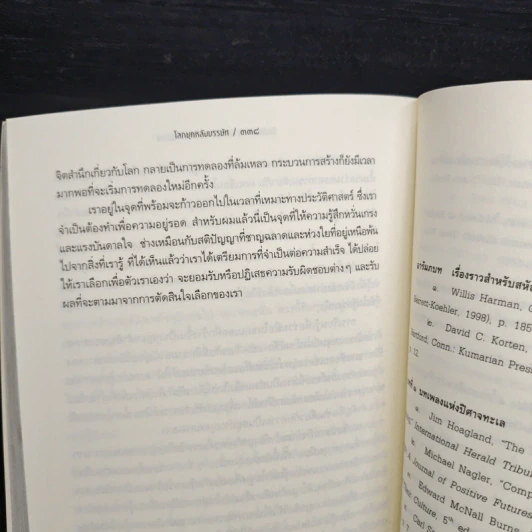 โลกยุคหลังบรรษัท / ๓๓๘
จิตสำนึกเกี่ยวกับโลก กลายเป็นการทดลองที่ล้มเหลว กระบวนการสร้างก็ยังมีเวลา
มากพอที่จะเริ่มการทดลองใหม่อีกครั้ง
เราอยู่ในจุดที่พร้อมจะก้าวออกไปในเวลาที่เหมาะทางประวัติศาสตร์ ซึ่งเรา
จำเป็นต้องทำเพื่อความอยู่รอด สำหรับผมแล้วนี่เป็นจุดที่ให้ความรู้สึกหวั่นเกรง
และแรงบันดาลใจ ช่างเหมือนกับสติปัญญาที่ชาญฉลาดและห่วงใยที่อยู่เหนือพ้น
ไปจากสิ่งที่เรารู้ ที่ได้เห็นแล้วว่าเราได้เตรียมการที่จำเป็นต่อความสำเร็จ ได้ปล่อย
ให้เราเลือกเพื่อตัวเราเองว่า จะยอมรับหรือปฏิเสธความรับผิดชอบต่างๆ และรับ
ผลที่จะตามมาจากการตัดสินใจเลือกของเรา
อารัมภบท เรื่องราวสำหรับสหัส
๑. Willis Harman,
Berrett-Koehler, 1998), p. 185
๒. David C. Korten,
Hartford, Conn.: Kumarian Press
12.
๑ บทเพลงแห่งปีศาจทะเล
๑. Jim Hoagland, "The
International Herald Tribun
๒. Michael Nagler, "Comp
A Journal of Positive Futures
๓. Edward McNall Burns
Culture, 5th ed
Carl Sa